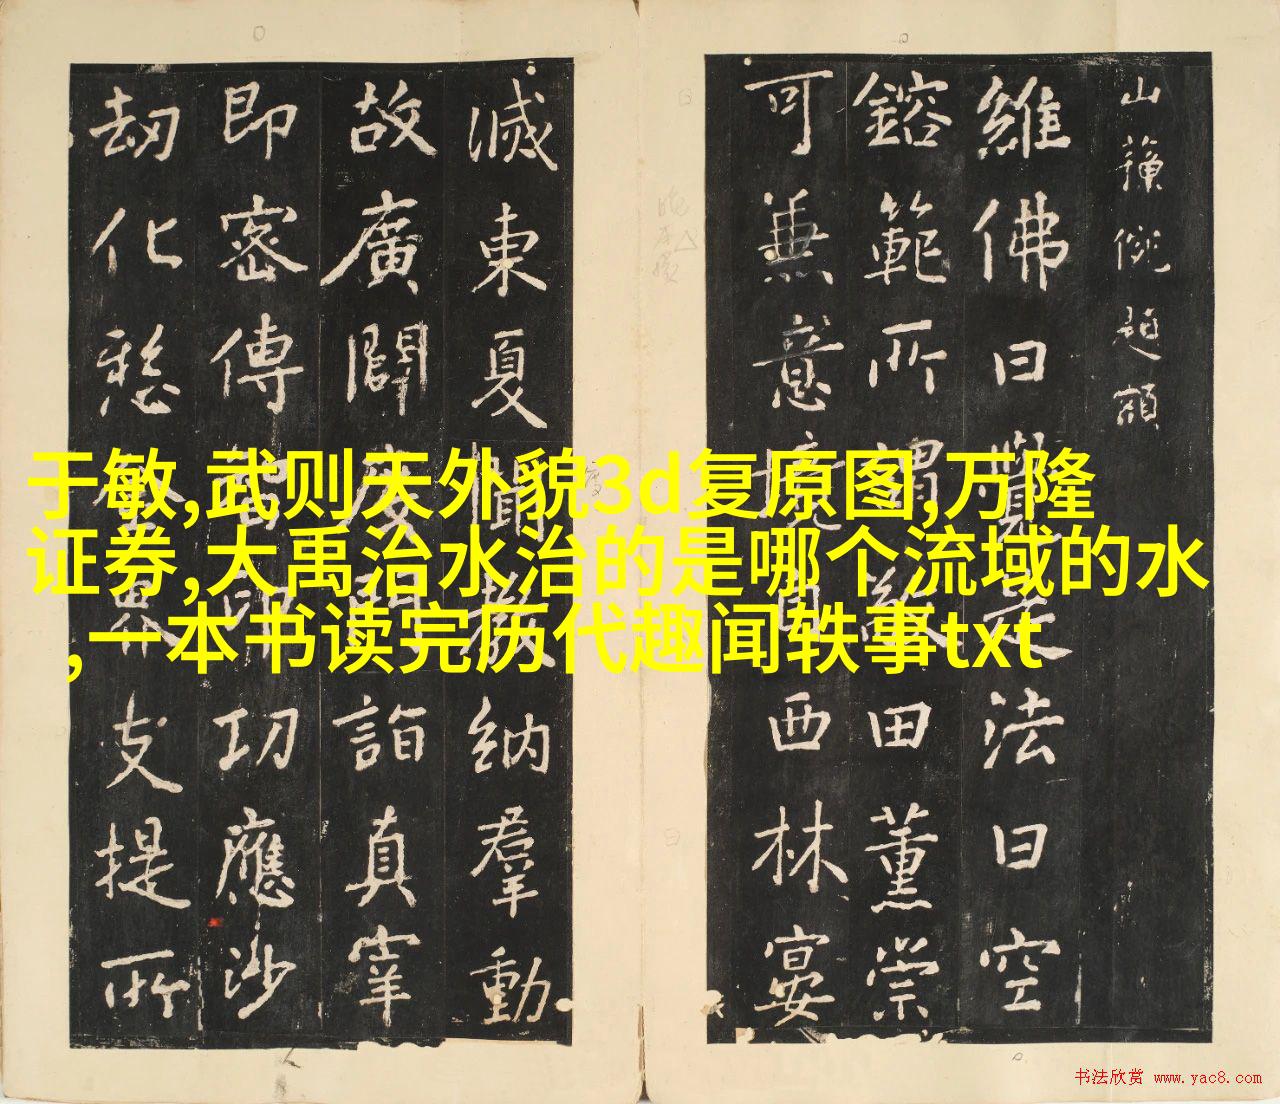 于敏,武则天外貌3d复原图,万隆
证券,大禹治水治的是哪个流域的水
,一本书读完历代趣闻轶事txt
維佛曰法曰空
鎔範所謂田薰崇
可兼意境西林宴
減東夏聞教納羣動
故廣闢度門詣真宰
即密傳智印功應沙
劫化界支提所
书法欣赏 www.yac8.com